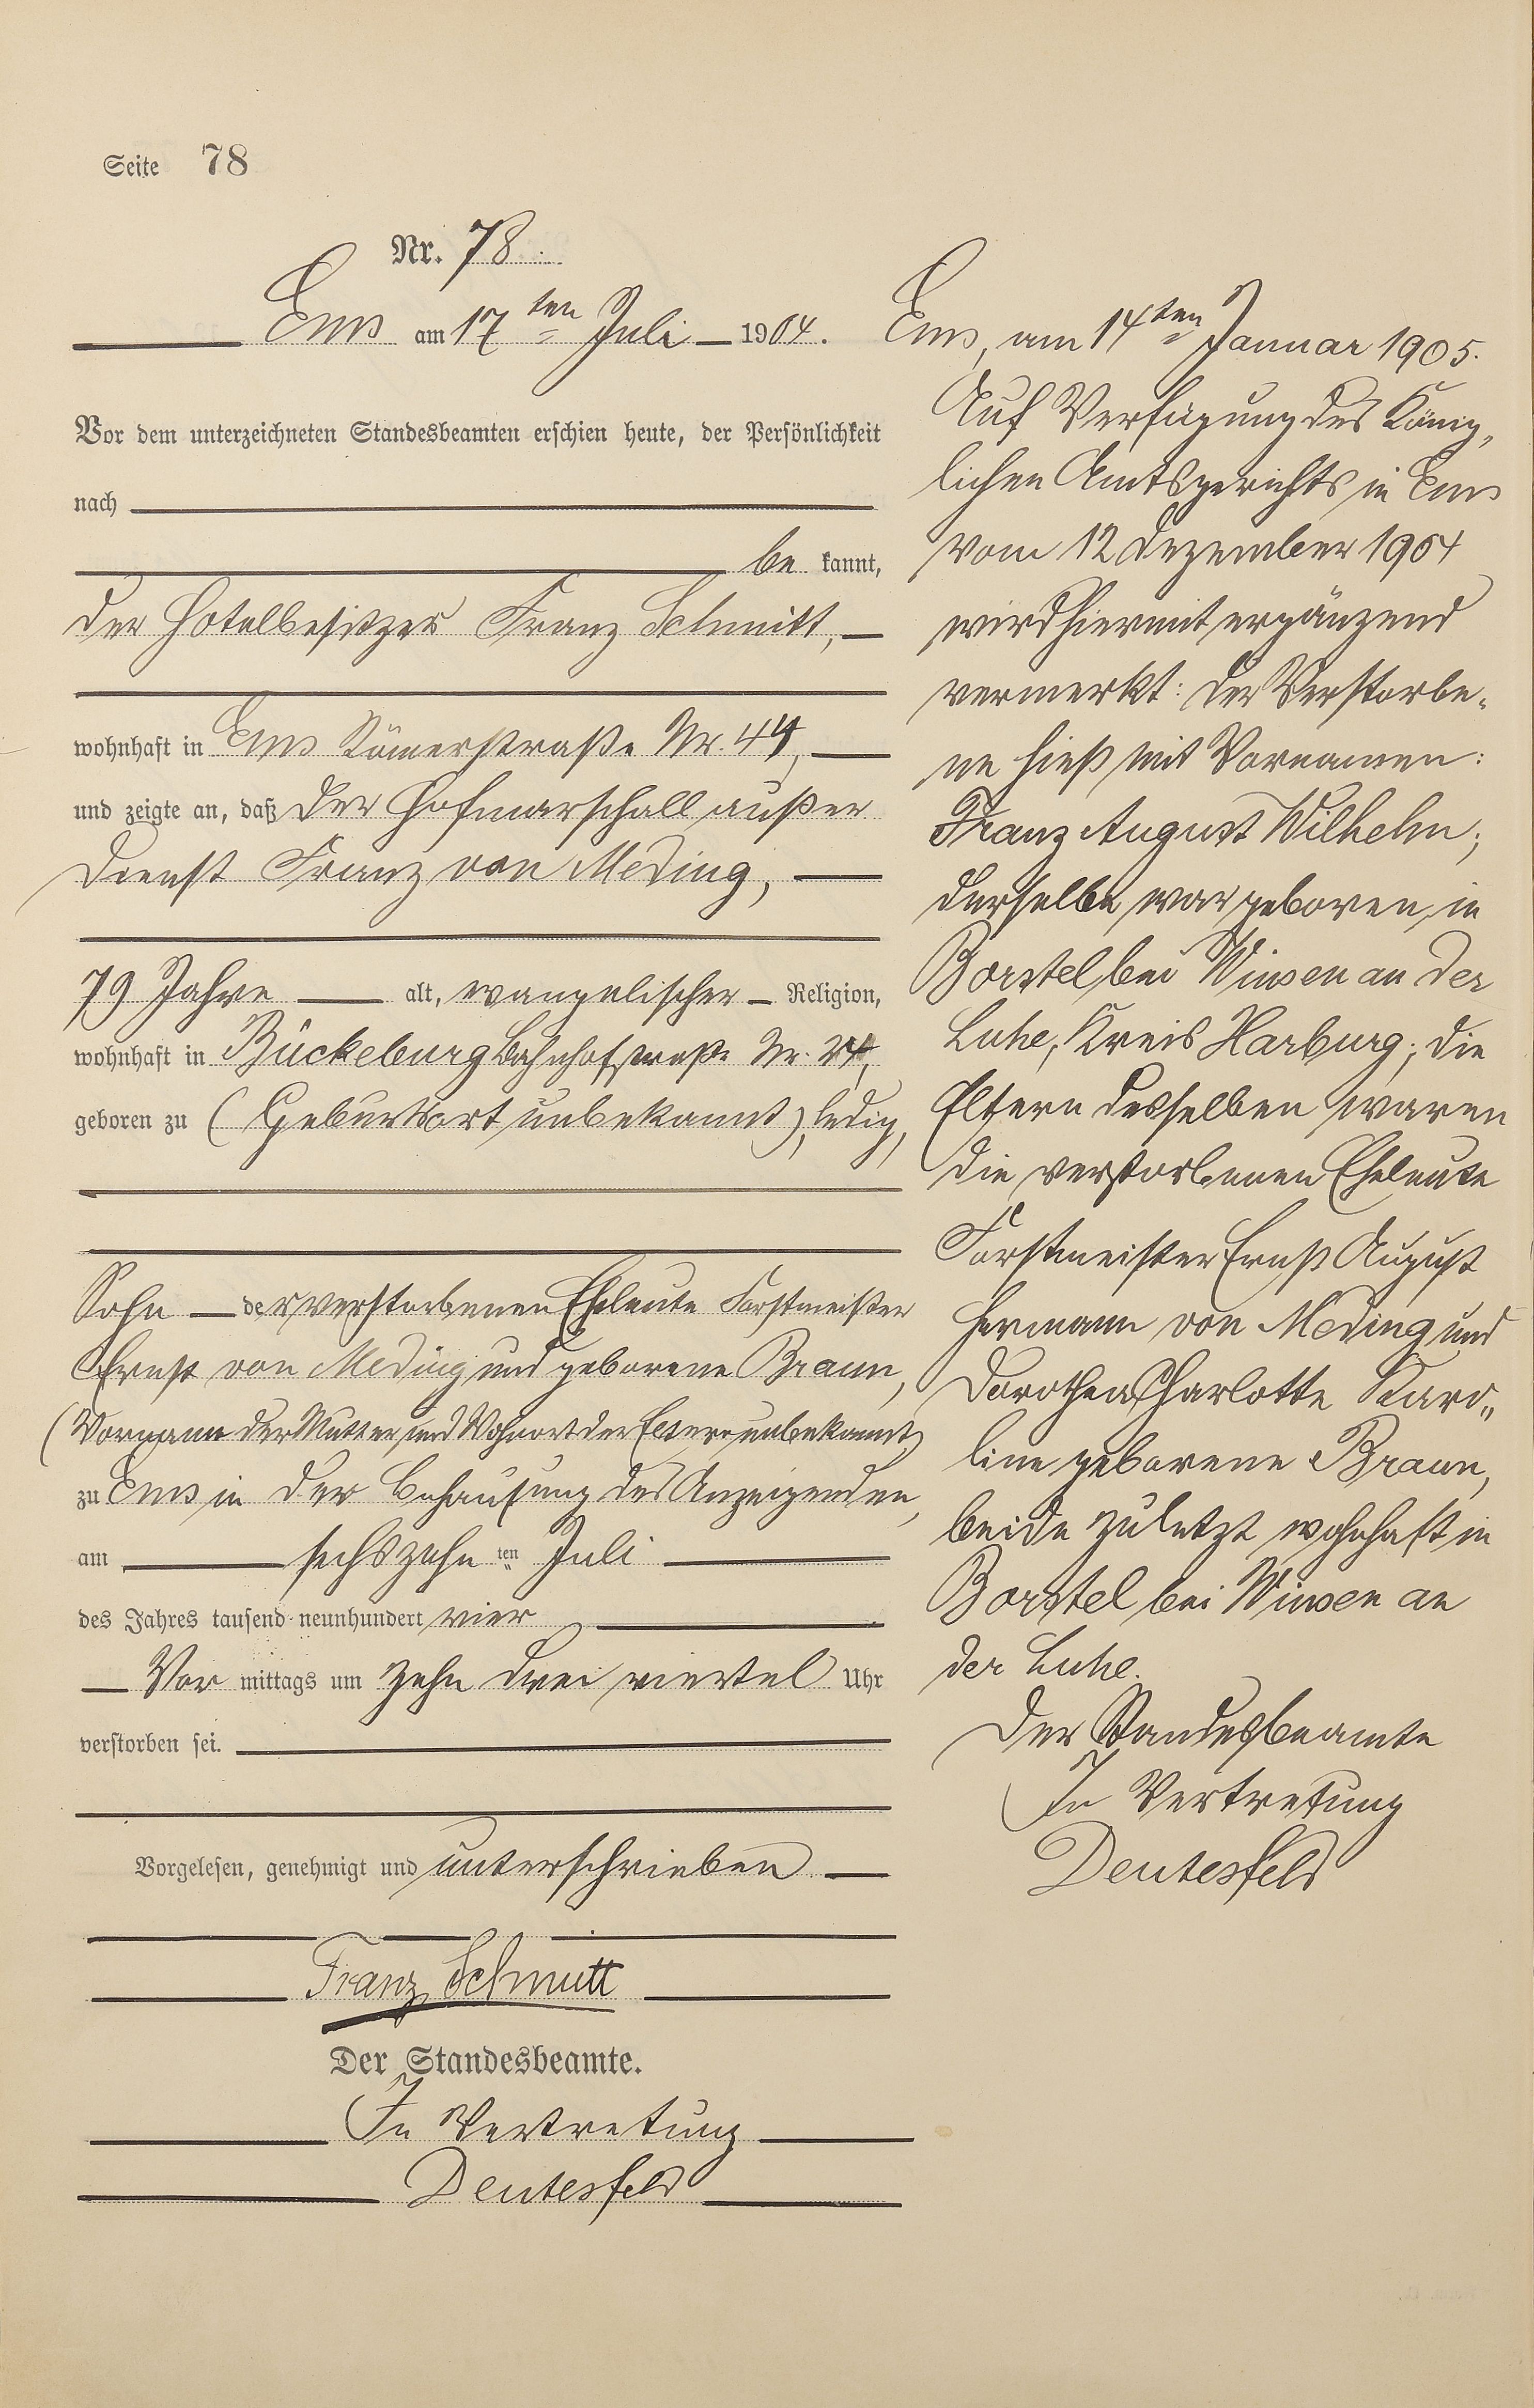 Seite 78
Nr. 78.
Ems am 17ten Juli 1904.
Vor dem unterzeichneten Standesbeamten erschien heute, der Persönlichkeit
nach
be kannt,
der Hotelbesitzer Franz Schmitt,
wohnhaft in Ems Römerstraße Nr. 44,
und zeigte an, daß der Hofmarschall außer
Dienst Franz von Meding,
79 Jahre alt, evangelischer Religion,
wohnhaft in Bückeburg Bahnhofstraße Nr.
geboren zu (Geburtsort unbekannt), ledig,
Sohn der verstorbenen Eheleute Forstmeister
Ernst von Meding und geborene Braun,
(Vorname der Mutter und Wohnort der Eltern unbekannt)
zu Ems in der Behausung des Anzeigenden,
am sechszehnten Juli
des Jahres tausend neunhundert vier
Vor mittags um zehn drei viertel Uhr
verstorben sei.
Vorgelesen, genehmigt und unterschrieben
Franz Schmitt
Der Standesbeamte.
In Vertretung
Deutesfeld
Ems, am 14ten Januar 1905.
Auf Verfügung des König,
lichen Amtsgerichts in Ems
vom 12 Dezember 1904
wird hiermit ergänzend
vermerkt: Der Verstorbe,
ne hieß mit Vornamen:
Franz August Wilhelm;
derselbe war geboren in
Borstel bei Winsen an der
Luhe, Kreis Harburg; die
Eltern desselben waren
die verstorbenen Eheleute
Forstmeister Ernst August
Hermann von Meding und
Dorothea Charlotte Karo„
line geborene Braun,
beide zuletzt wohnhaft in
Borstel bei Winsen an
der Luhe.
Der Standesbeamte
In Vertretung
Deutesfeld